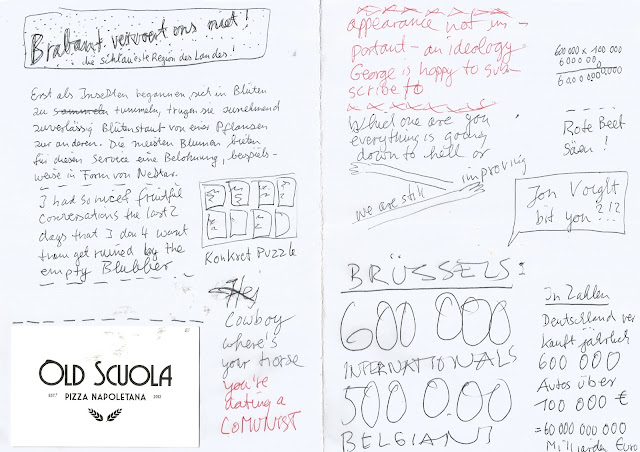 Brabant vervoert ons niet!
die schlaueste Region des Landes!
Erst als Insekten begannen, sich in Blüten
zu sammeln tummeln, trugen sie zunehmend
zuverlässig Blütenstaub von einer Pflanzen
zur anderen. Die meisten Blumen bieten
für diesen Service eine Belohnung, beispiels-
weise in Form von Nektar.
I had so nice & fruitful
conversations the last 2
days that I don't want
them get ruined by the
empty Blubber
Konkret Puzzle
Hej
Cowboy
where's
your horse
you're
dating a
COMUNIST
OLD SCUOLA
PIZZA NAPOLETANA
appearance not im-
portant - an ideology
George is happy to sub-
scribe to
Which one are you
everything is going
down to hell or
we are still improving
600 000 x 100 000
Rote Beet
Säen!
Jon Voight
bit you ?!?
BRÜSSELS:
600 000
INTERNATIONALS
500 000
BELGIANS
In Zahlen
Deutschland ver
kauft jährlich
600 000
Autos über
100 000 €
= 60 000 000 000
Milliarden Euro